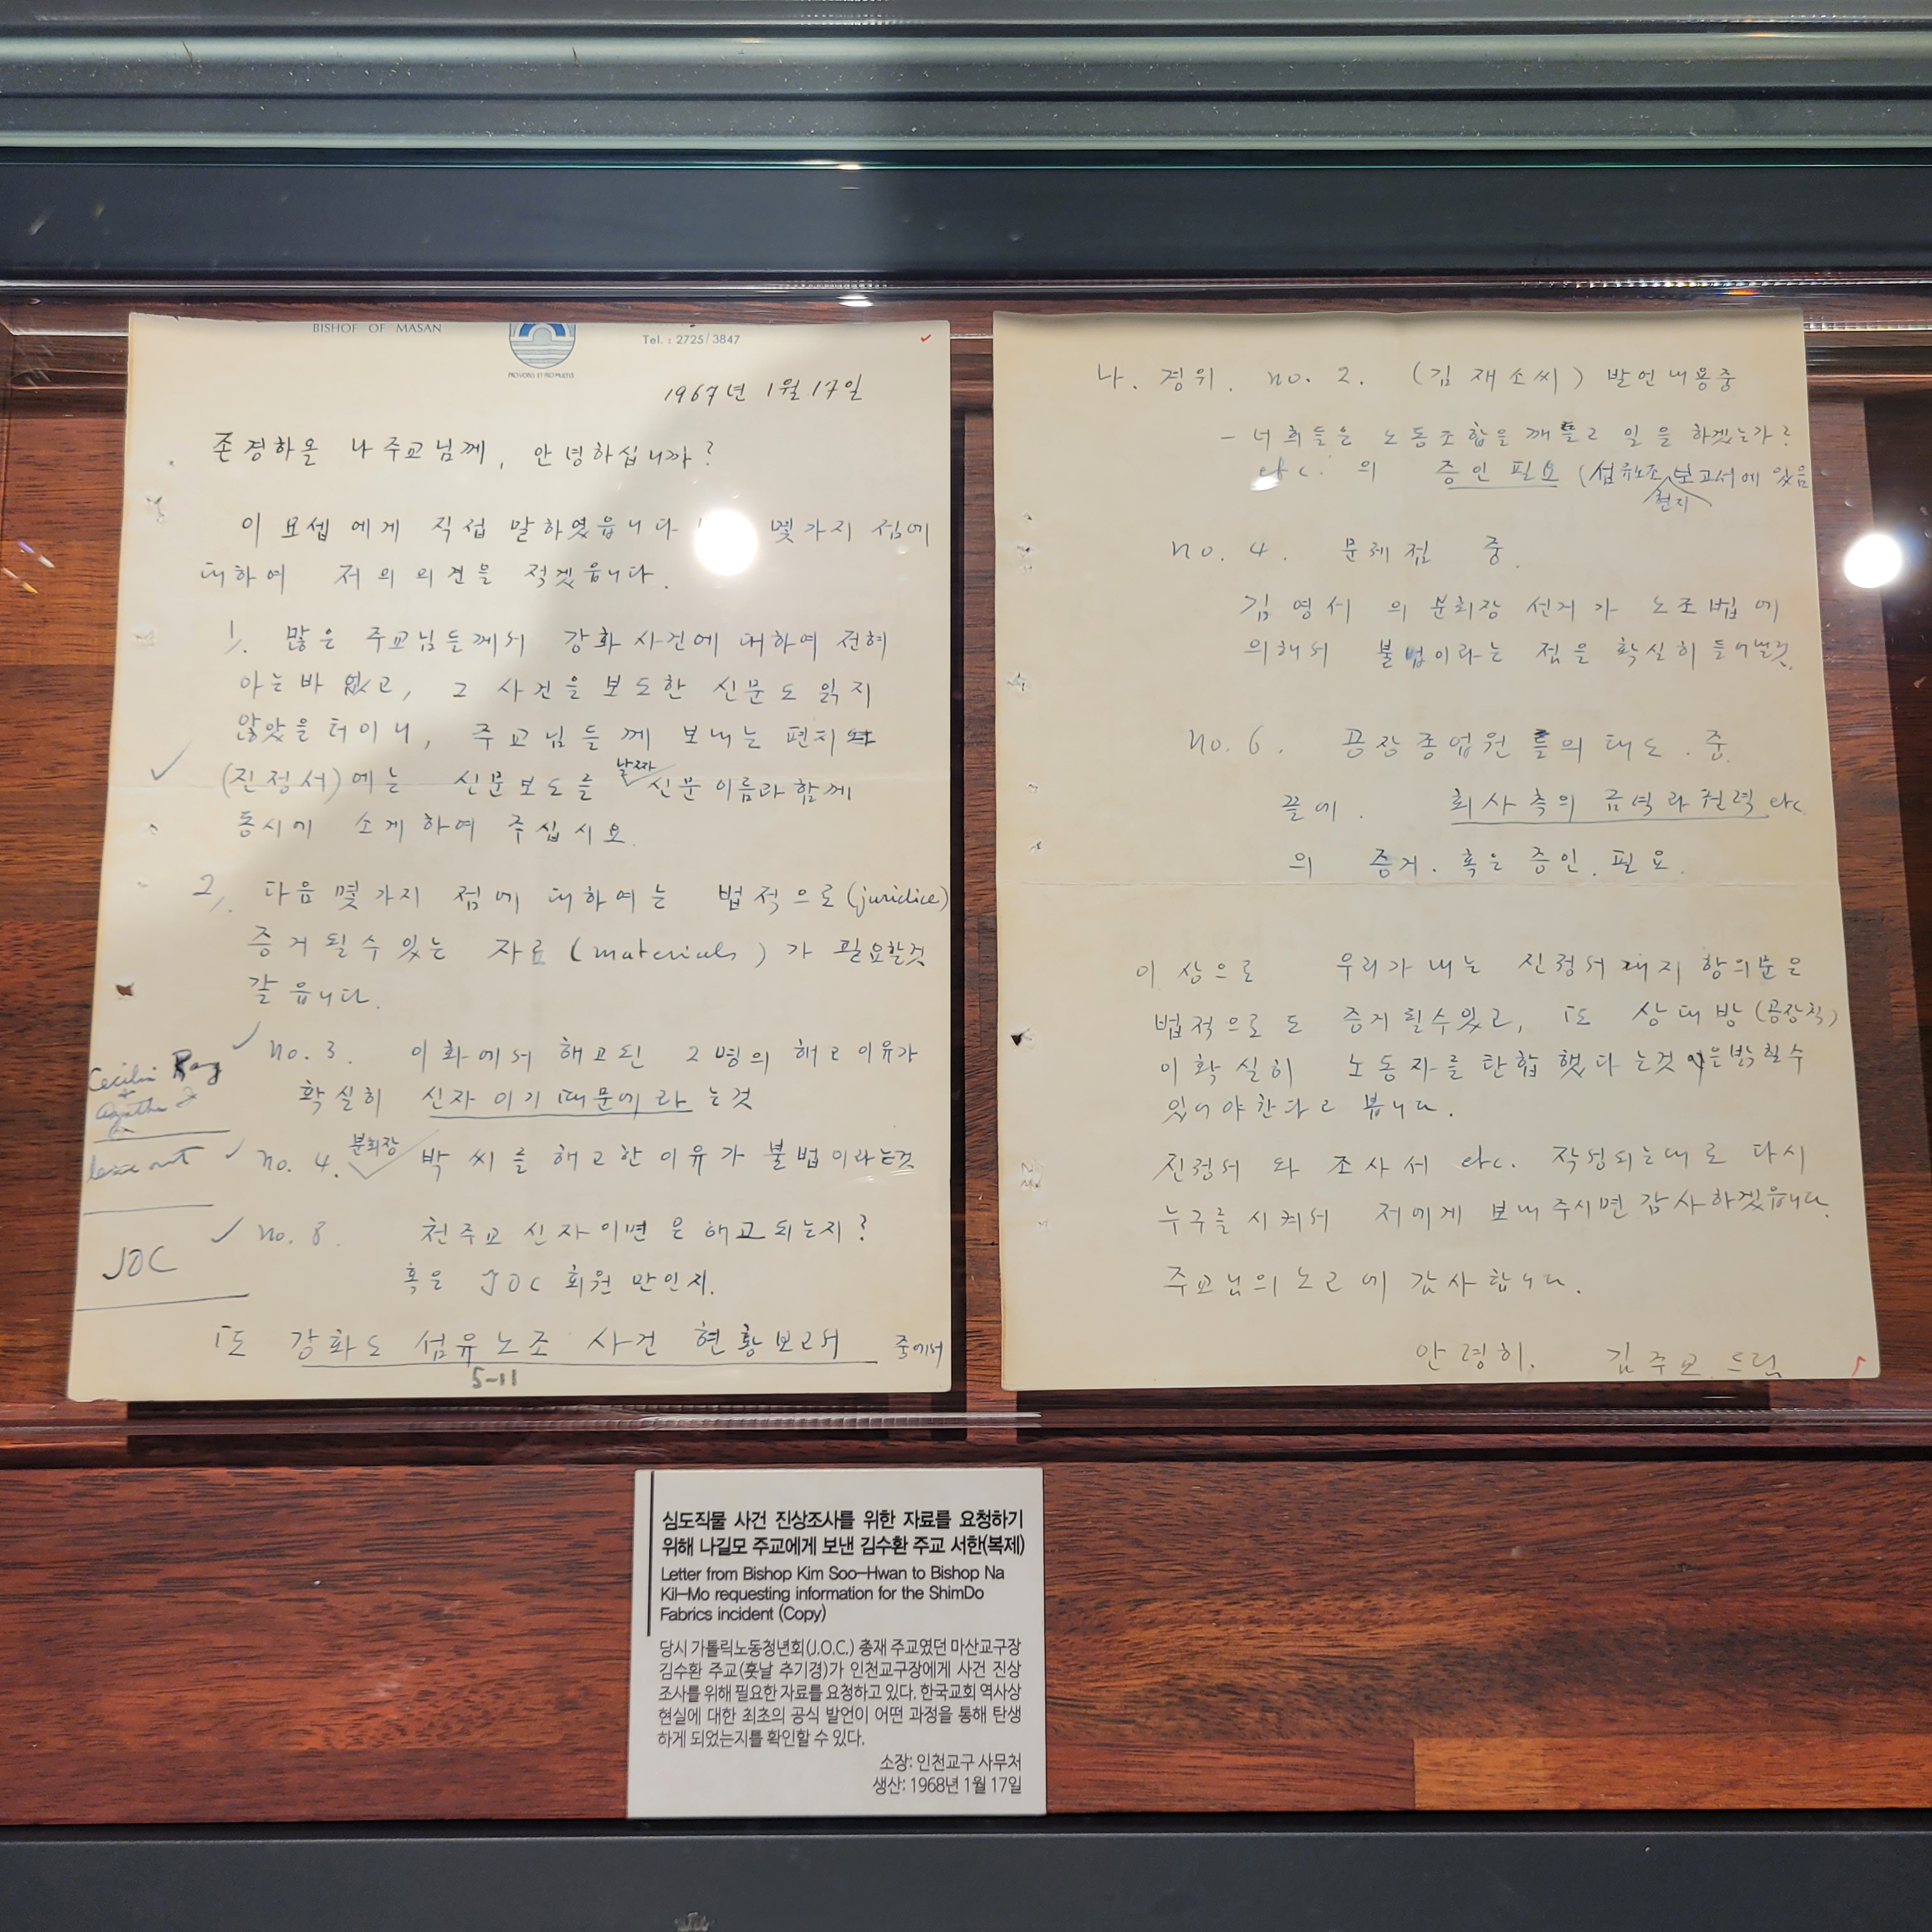 BISHOP OF MASAN
Tel. : 2725/3847
1967년 1월 17일
존경하올 나 주교님께, 안녕하십니까?
이 요셉에게 직접 말하였읍니다 몇가지 점에
대하여 저의 의견을 적겠읍니다.
1. 많은 주교님들께서 강화 사건에 대하여 전혀
아는바 없고, 그 사건을 보도한 신문도 읽지
않았을 터이니, 주교님들께 보내는 편지
(진정서)에는 신문보도를 날짜 신문이름과 함께
동시에 소게하여 주십시요.
2. 다음 몇가지 점에 대하여는 법적으로 (juridice)
증거될수있는 자료 (materials)가 필요할것
같읍니다.
Cecilia
Agatha
no. 3. 이화에서 해고된 2명의 해고이유가
확실히 신자이기 때문에라는것
leave out
no. 4. 분회장 박씨를 해고한 이유가 불법이라는것
JOC
no. 8. 천주교 신자이면은 해고되는지?
혹은 JOC 회원만인지.
또 강화도 섬유노조 사건 현황보고서 중에서
5-11
나. 경위. no. 2. (김재소씨) 발언내용중
- 너희들은 노동조합을 깨틀고 일을 하겠는가?
etc. 의 증인 필요 (섬유노조 현지 보고서에 있음
no. 4. 문제점 중.
김영서의 분회장 선거가 노조법에
의해서 불법이라는 점을 확실히 들어낼것.
no. 6. 공장종업원들의 태도. 중.
끝에. 회사측의 금력과 권력 etc
의 증거. 혹은 증인. 필요.
이상으로 우리가 내는 진정서 내지 항의문은
법적으로도 증거될수있고, 또 상대방 (공장측)
이 확실히 노동자를 탄합했다는것 은박힐수
있어야 한다고 봅니다.
진정서와 조사서 etc. 작성되는대로 다시
누구를 시켜서 저에게 보내주시면 감사하겠읍니다.
주교님의 노고에 감사합니다.
안령히. 김주교 드림
심도직물 사건 진상조사를 위한 자료를 요청하기
위해 나길모 주교에게 보낸 김수환 주교 서한(복제)
Letter from Bishop Kim Soo-Hwan to Bishop Na
Kil-Mo requesting information for the ShimDo
Fabrics incident (Copy)
당시 가톨릭노동청년회(J.O.C.) 총재 주교였던 마산교구장
김수환 주교(훗날 추기경)가 인천교구장에게 사건 진상
조사를 위해 필요한 자료를 요청하고 있다. 한국교회 역사상
현실에 대한 최초의 공식 발언이 어떤 과정을 통해 탄생
하게 되었는지를 확인할 수 있다.
소장: 인천교구 사무처
생산: 1968년 1월 17일